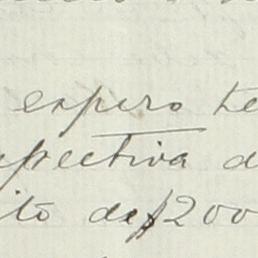 espero te
spectiva d
ito de $200